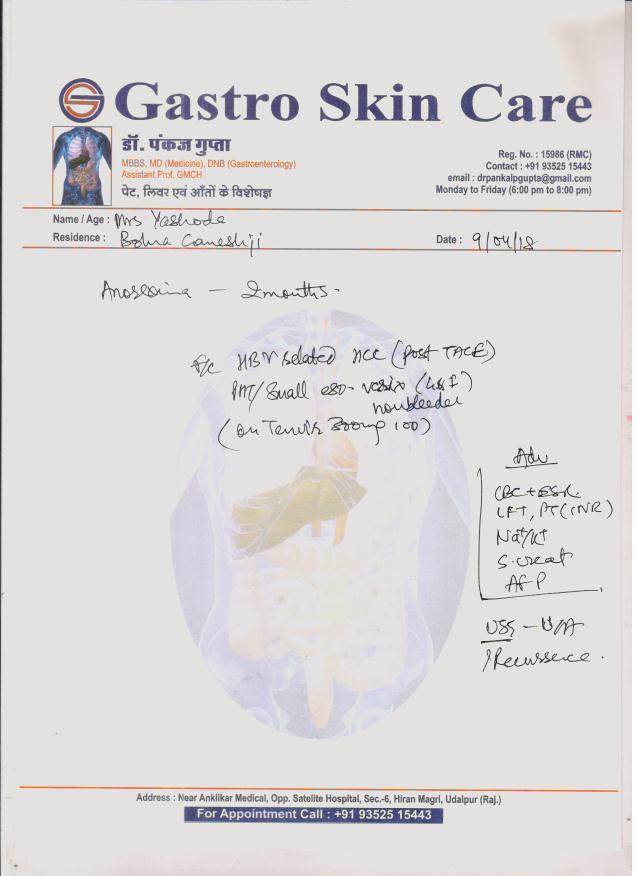 Gastro Skin Care
डॉ. पंकज गुप्ता
MBBS, MD (Medicine), DNB (Gastroenterology)
Assistant Prof. GMCH
पेट, लिवर एवं आँतों के विशेषज्ञ
Reg. No. : 15986 (RMC)
Contact : +91 93525 15443
email : drpankalpgupta@gmail.com
Monday to Friday (6:00 pm to 8:00 pm)
Name / Age : Mrs Yashoda
Residence : Bohra Ganeshji
Date : 9/04/18
Anorexia — 2months -
HBV related HCC (Post TACE)
PHT/Small eso-
nonbleeder
(on 300mg 1OD)
Adv
CBC + ESR
LFT, PT (INR)
Na+/K+
S. creat
AFP
USG - W/A
?Recurrence.
Address : Near Anklikar Medical, Opp. Satelite Hospital, Sec.-6, Hiran Magri, Udaipur (Raj.)
For Appointment Call : +91 93525 15443